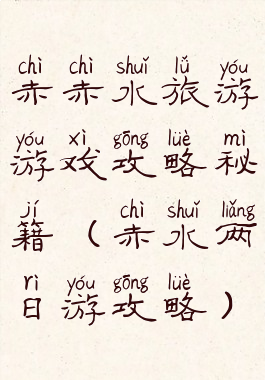 chì chì shuǐ lǚ yóu
赤赤水旅游
yóu xì gōng lüè mì
游戏攻略秘
jí chì shuǐ liǎng
籍（赤水两
rì yóu gōng lüè
日游攻略）